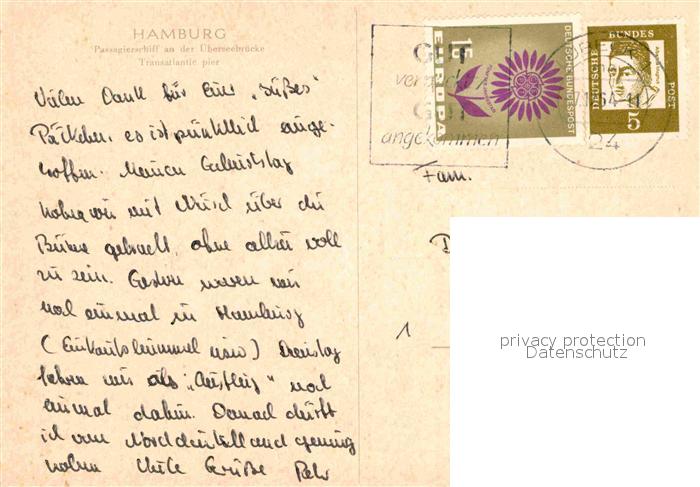 HAMBURG
Passagierschiff an der Überseebrücke
Transatlantic pier
Vielen Dank für Euer "süßes"
Päckchen. es ist pünktlich einge-
troffen. Meinen Geburtstag
haben wir mit Müsel über die
Bühne gebracht, ohne allzu voll
zu sein. Gestern waren wir
mal einmal in Hamburg
(Einkaufsbummel usw) Dienstag
fahren wir als "Ausflug" noch
einmal dahin. Danach dürft
ich von Norddeutschland genug
haben Viele Grüße Petr
15
EUROPA
DEUTSCHE BUNDESPOST
DEUTSCHE
BUNDES
POST
5
GUT
GUT
angekommen
64
24
Fam.
1
privacy protection
Datenschutz